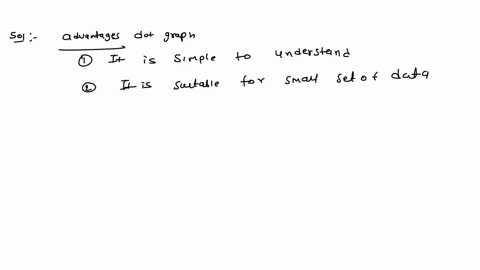 Sol:- advantages dot graph
① It is simple to understand
② It is suitable for small set of data